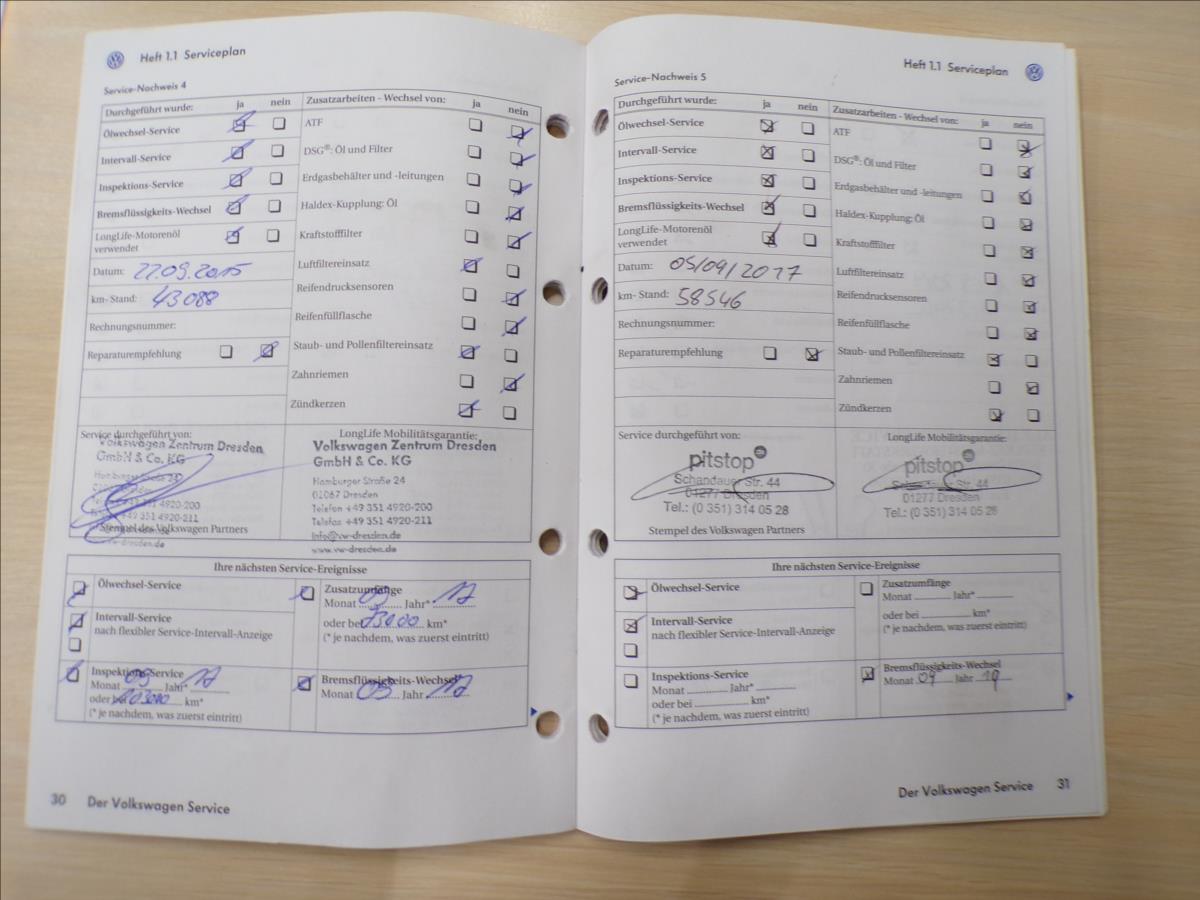 Heft 1.1 Serviceplan
Service-Nachweis 4
Durchgeführt wurde: ja nein
Ölwechsel-Service
Intervall-Service
Inspektions-Service
Bremsflüssigkeits-Wechsel
LongLife-Motorenöl
verwendet
Datum: 22.09.2015
km- Stand: 43088
Rechnungsnummer:
Reparaturempfehlung
Zusatzarbeiten - Wechsel von: ja nein
ATF
DSG®: Öl und Filter
Erdgasbehälter und -leitungen
Haldex-Kupplung: Öl
Kraftstofffilter
Luftfiltereinsatz
Reifendrucksensoren
Reifenfüllflasche
Staub- und Pollenfiltereinsatz
Zahnriemen
Zündkerzen
Service durchgeführt von:
Volkswagen Zentrum Dresden
GmbH & Co. KG
Hamburger Straße 24
Telefon +49 351 4920-200
Telefax +49 351 4920-211
Stempel des Volkswagen Partners
www.vw-dresden.de
LongLife Mobilitätsgarantie:
Volkswagen Zentrum Dresden
GmbH & Co. KG
Hamburger Straße 24
01067 Dresden
Telefon +49 351 4920-200
Telefax +49 351 4920-211
Info@vw-dresden.de
www.vw-dresden.de
Ihre nächsten Service-Ereignisse
Ölwechsel-Service
Intervall-Service
nach flexibler Service-Intervall-Anzeige
Inspektions-Service
Monat 09 Jahr* 17
oder bei km*
(* je nachdem, was zuerst eintritt)
Zusatzumfänge
Monat 09 Jahr* 17
oder bei km*
(* je nachdem, was zuerst eintritt)
Bremsflüssigkeits-Wechsel
Monat 09 Jahr 17
30 Der Volkswagen Service
Heft 1.1 Serviceplan
Service-Nachweis 5
Durchgeführt wurde: ja nein
Ölwechsel-Service
Intervall-Service
Inspektions-Service
Bremsflüssigkeits-Wechsel
LongLife-Motorenöl
verwendet
Datum: 05/09/2017
km- Stand: 58546
Rechnungsnummer:
Reparaturempfehlung
Zusatzarbeiten - Wechsel von: ja nein
ATF
DSG®: Öl und Filter
Erdgasbehälter und -leitungen
Haldex-Kupplung: Öl
Kraftstofffilter
Luftfiltereinsatz
Reifendrucksensoren
Reifenfüllflasche
Staub- und Pollenfiltereinsatz
Zahnriemen
Zündkerzen
Service durchgeführt von:
pitstop
Schandauer Str. 44
01277 Dresden
Tel.: (0 351) 314 05 28
Stempel des Volkswagen Partners
LongLife Mobilitätsgarantie:
pitstop
Schandauer Str. 44
01277 Dresden
Tel.: (0 351) 314 05 28
Ihre nächsten Service-Ereignisse
Ölwechsel-Service
Intervall-Service
nach flexibler Service-Intervall-Anzeige
Inspektions-Service
Monat Jahr*
oder bei km*
(* je nachdem, was zuerst eintritt)
Zusatzumfänge
Monat Jahr*
oder bei km*
(* je nachdem, was zuerst eintritt)
Bremsflüssigkeits-Wechsel
Monat 09 Jahr 19
Der Volkswagen Service 31